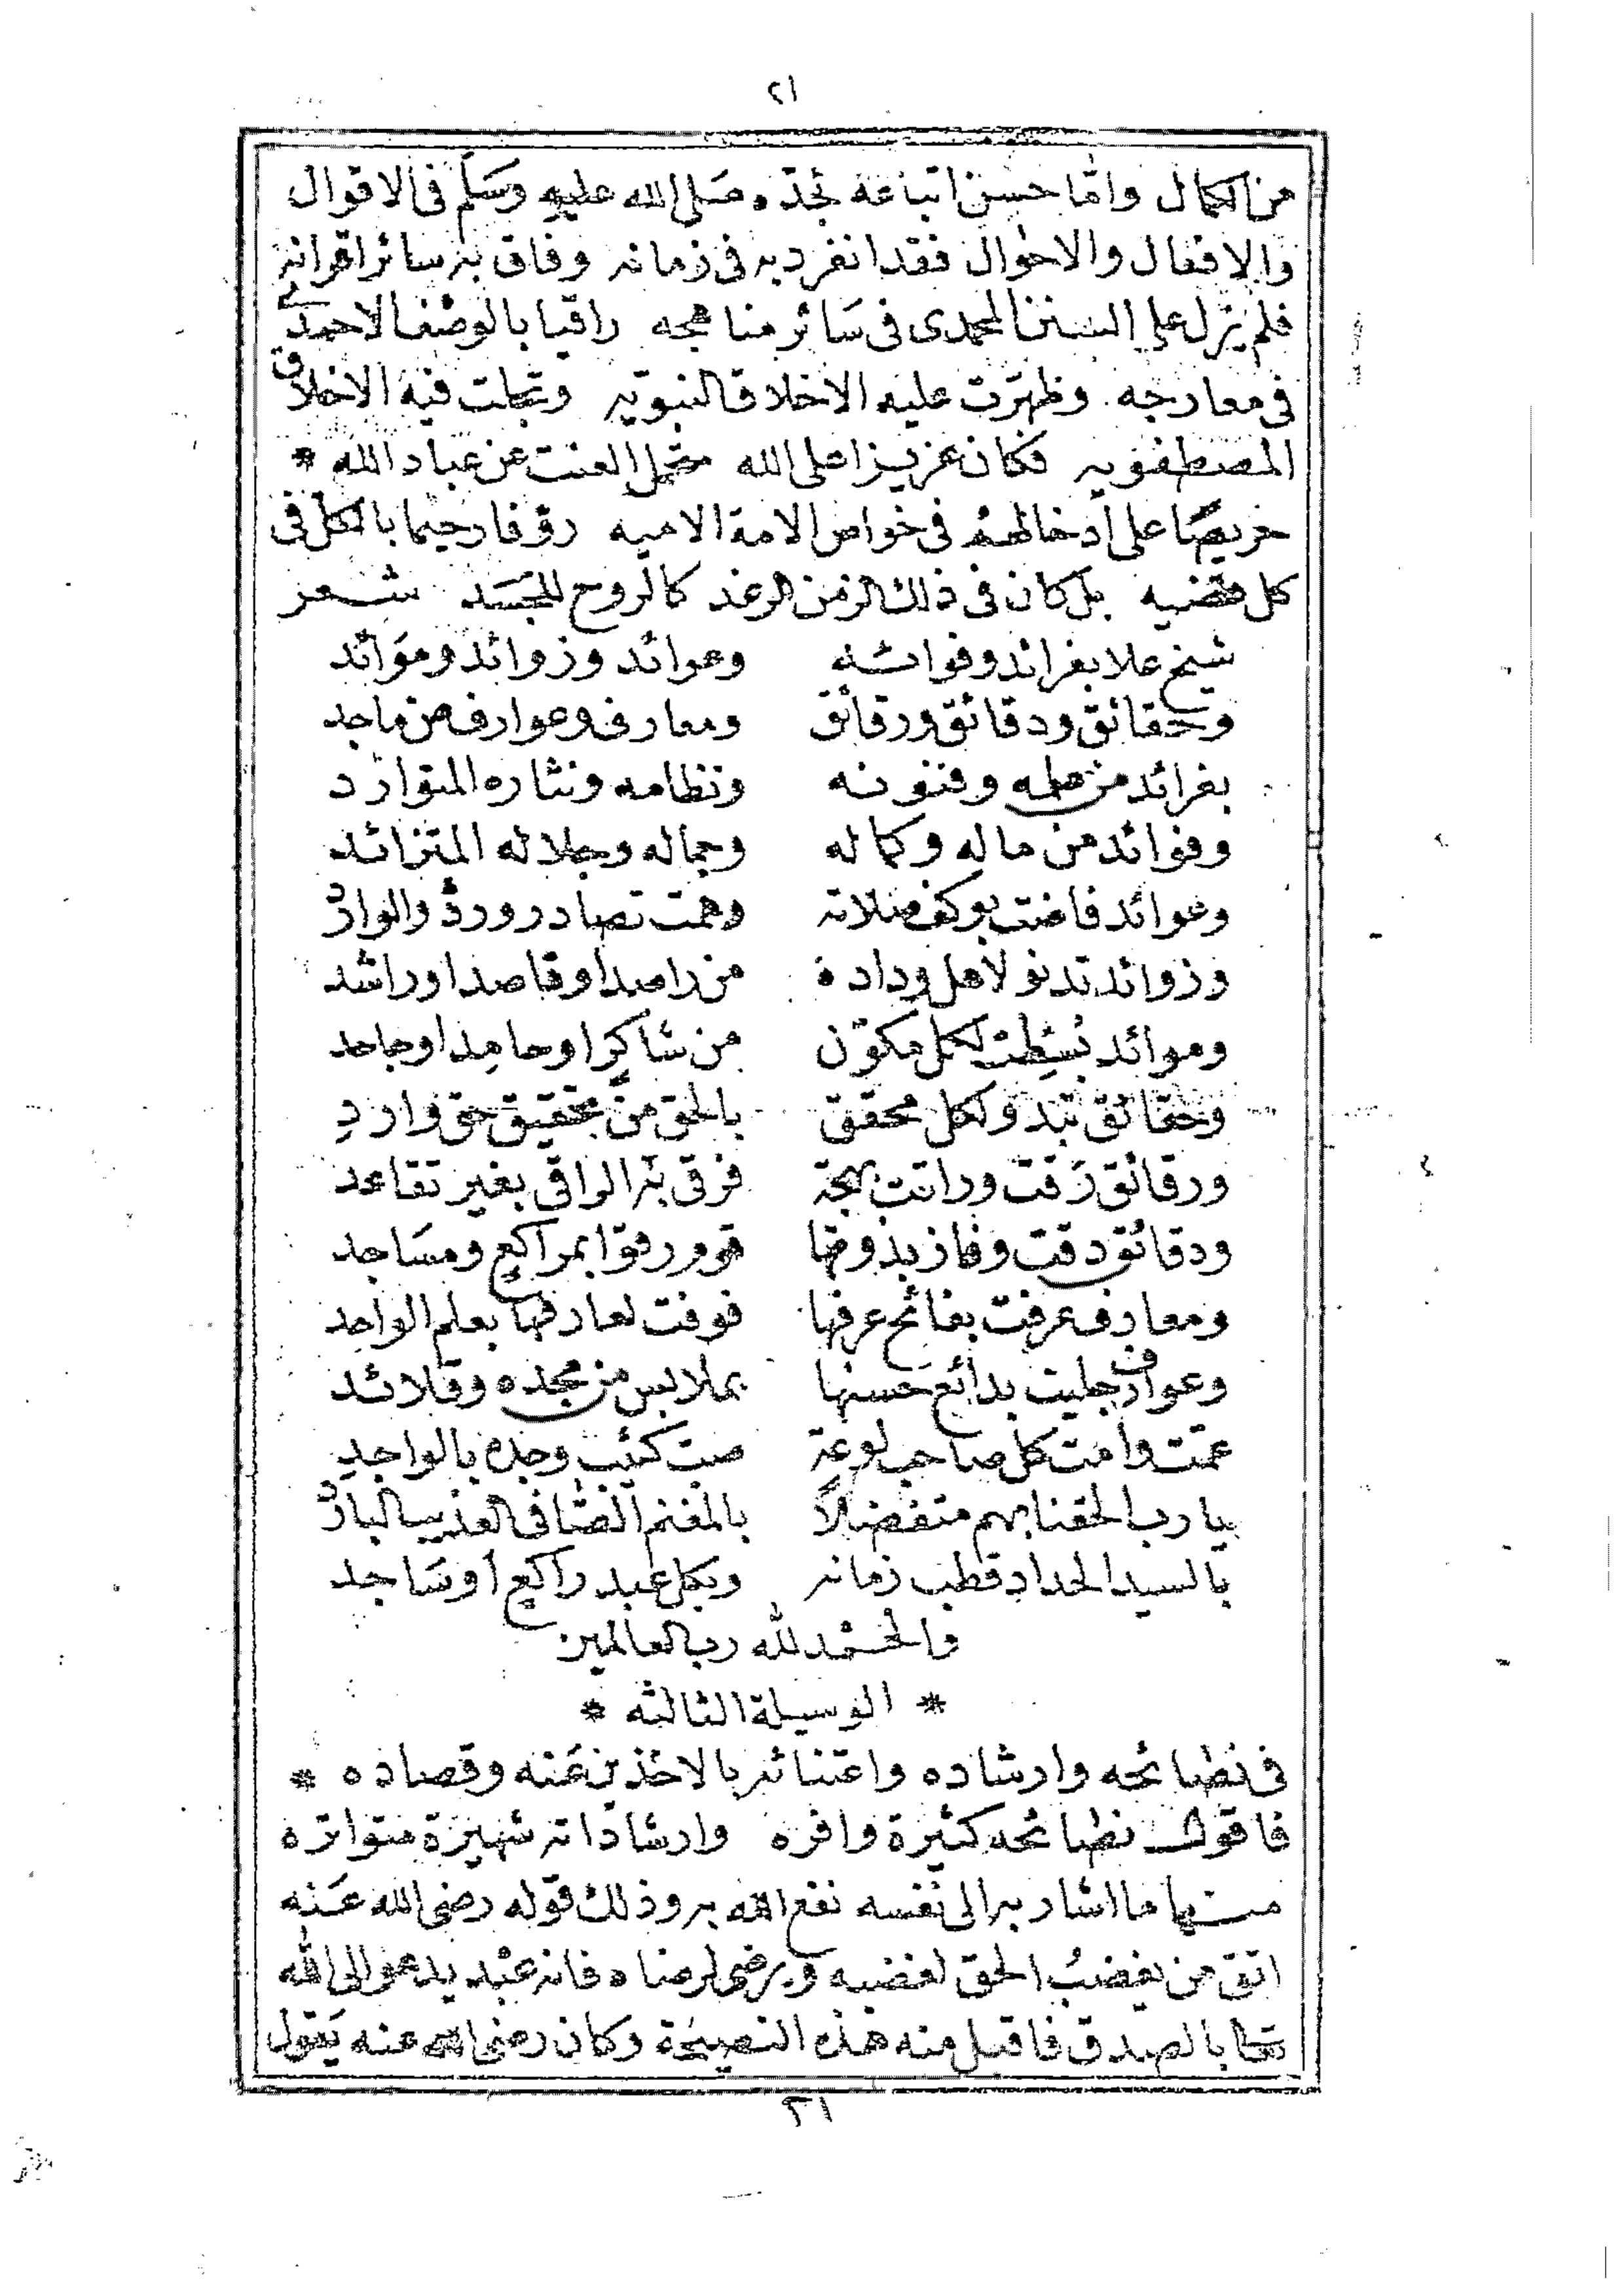 ٢١
من الكمال واما حسن اتباعه لجده صلى الله عليه وسلم فى الاقوال
والافعال والاحوال فقد انفرد به فى زمانه وفاق به سائر اقرانه
فلم يزل على السنن المحمدى فى سائر مناهجه راقيا بالوصف الاحمدى
فى معارجه وظهرت عليه الاخلاق النبويه وتجلت فيه الاخلاق
المصطفويه فكان عزيزا على الله متحمل العنت عن عباد الله *
حريصًا على ادخالهم فى خواص الامة الاميه رؤفا رحيما بالكل فى
كل قضيه بل كان فى ذلك الزمن الرغد كالروح للجسد شعر
شيخ علا بفرائد وفوائد وعوائد وزوائد وموائد
وحقائق ودقائق ورقائق ومعارف وعوارف من ماجد
بفرائد من علمه وفنونه ونظامه ونثاره المتوارد
وفوائد من ماله وكماله وجماله وجلاله المتزائد
وعوائد فاضت بوكف صلاته وهمت تصادر ورد والوارد
وزوائد تدنو لاهل وداده من راصد او قاصد او راشد
وموائد بُسِطت لكل مكوّن من شاكرٍ او حامِد او جاحد
وحقائق تبدو لكل محقق بالحق من تحقيق حق واردِ
ورقائق رَقت وراقت بهجة فرقى به الراقى بغير تقاعد
ودقائق دقت وفاز بذوقها قوم رقوا بمراكعٍ ومسَاجد
ومعارف عرفت بفائح عرفها فوفت لعارفها بعلم الواحِد
وعوارف جليت بدائع حَسنها بملابس من مجده وقلائد
عمّت وامت كل صاحب لوعة صبّ كئيب وجده بالواجدِ
يا رب الحقنا بهم متفضلاً بالمغنم الصّافى العذب البارد
بالسيد الحداد قطب زمانه وبكل عبد راكع أو سَاجد
والحمد لله رب العالمين
* الوسيلة الثالثه *
فى نصائحه وارشاده واعتنائه بالاخذين عَنه وقصاده *
فاقول نصائحه كثيرة وافره وارشاداته شهيرة متواتره
منها ما اشار به الى نفسه نفع الله به وذلك قوله رضى الله عَنه
اتق من يغضبُ الحق لغضبه ويرضى لرضاه فانه عبْد يدعو الى الله
تعالى بالصدق فاقبل منه هذه النصيحة وكان رضى الله عنه يَقول
٢١